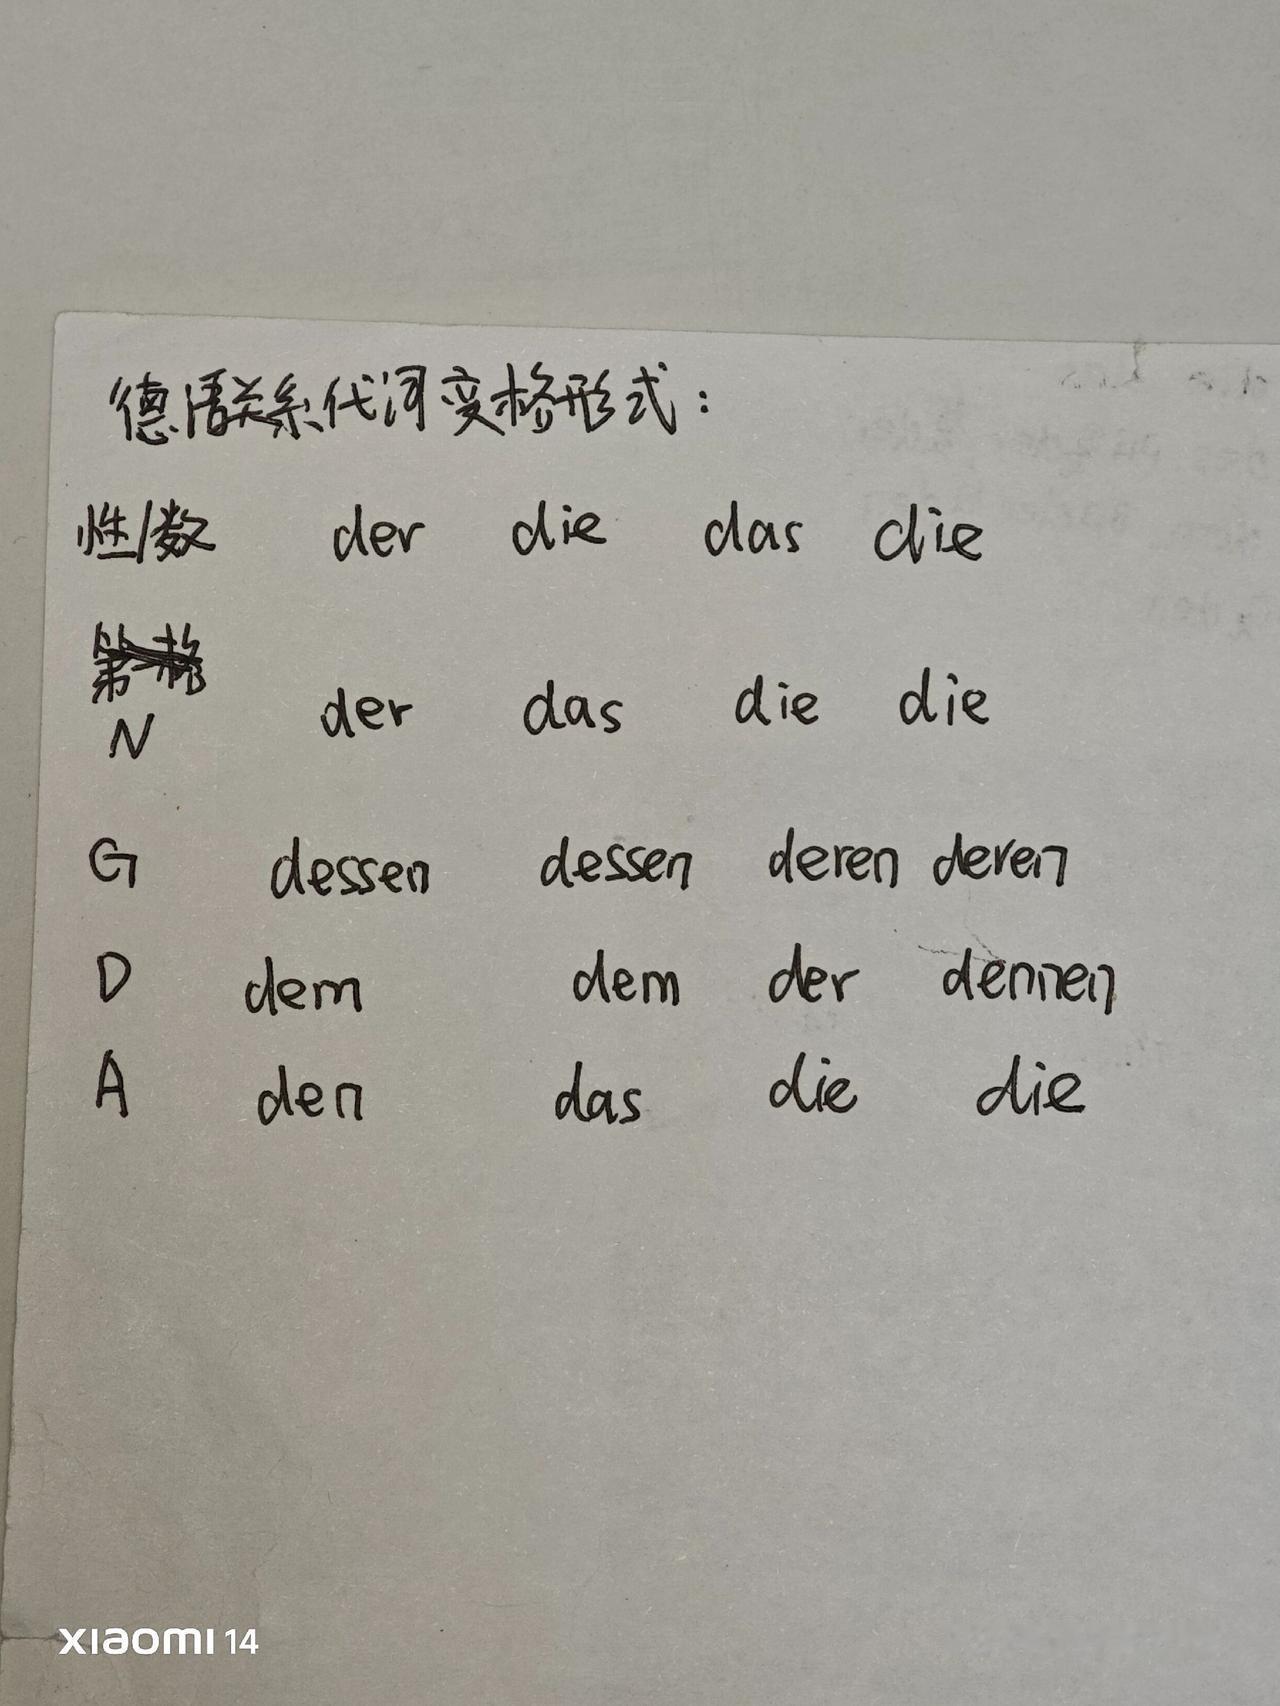 德语关系代词变格形式：
性/数 der die das die
N der das die die
G dessen dessen deren deren
D dem dem der dennen
A den das die die
xiaomi 14